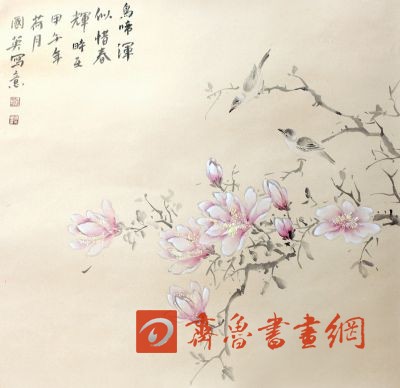 鳥啼渾
似惜春
輝時至
甲午年
荷月
國英寫意
齊魯書畫網